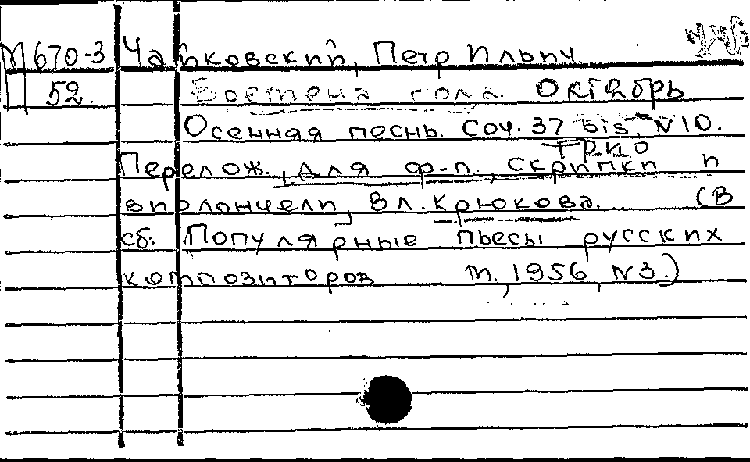 М670-3 Чайковский, Петр Ильич
П 52. Времена года. Октябрь
Осенная песнь. Соч. 37 bis, N10.
Трио
Перелож. для ф-п., скрипки и
виолончели, Вл. Крюкова. (В
сб: Популярные пьесы русских
композиторов М., 1956, N3.)